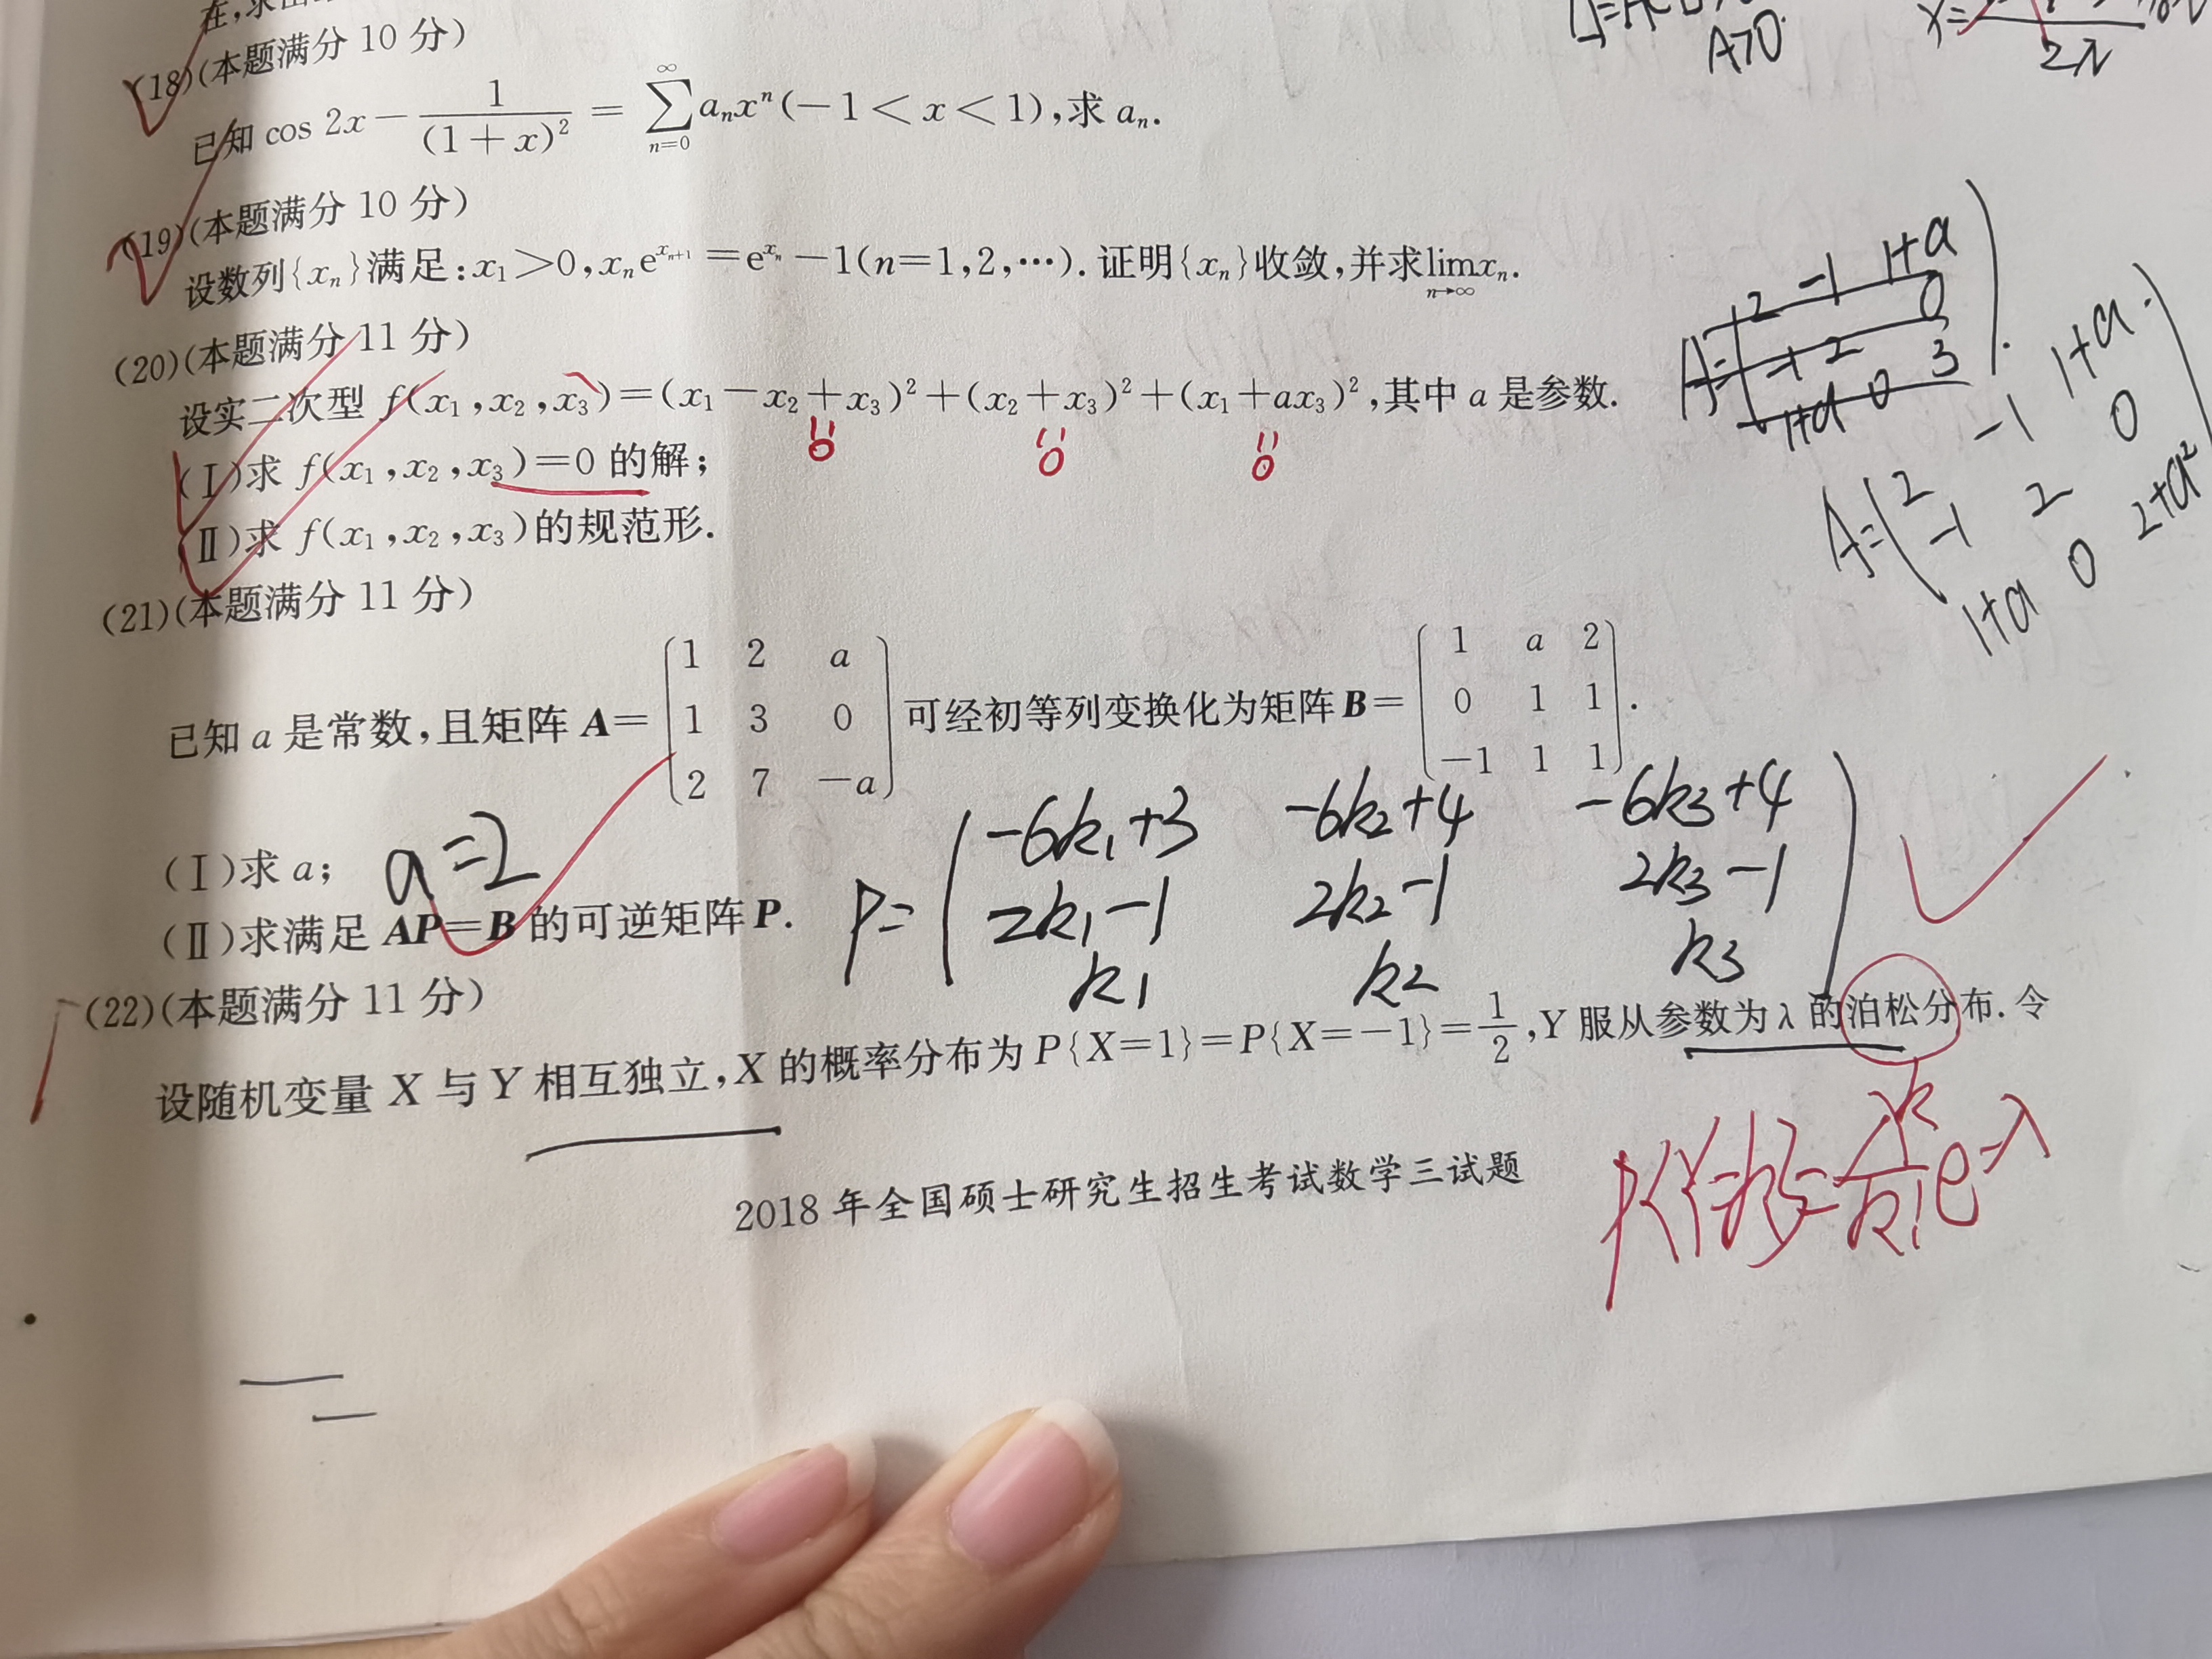 (18)(本题满分 10 分)
已知 cos 2x − 1/(1+x)² = ∑_{n=0}^{∞} aₙxⁿ(−1<x<1),求 aₙ.
(19)(本题满分 10 分)
设数列{xₙ}满足:x₁>0,xₙe^{xₙ₊₁}=e^{xₙ}−1(n=1,2,…).证明{xₙ}收敛,并求lim_{n→∞}xₙ.
(20)(本题满分 11 分)
设实二次型 f(x₁,x₂,x₃)=(x₁−x₂+x₃)²+(x₂+x₃)²+(x₁+ax₃)²,其中 a 是参数.
0 0 0
(Ⅰ)求 f(x₁,x₂,x₃)=0 的解;
(Ⅱ)求 f(x₁,x₂,x₃)的规范形.
A>0
2λ
A= 2 −1 1+a
−1 2 0
1+a 0 3
A= 2 −1 1+a
−1 2 0
1+a 0 2+a²
(21)(本题满分 11 分)
已知 a 是常数,且矩阵 A= (1 2 a; 1 3 0; 2 7 −a) 可经初等列变换化为矩阵 B= (1 a 2; 0 1 1; −1 1 1).
(Ⅰ)求 a; a=2
(Ⅱ)求满足 AP=B 的可逆矩阵 P.
P= −6k₁+3 −6k₂+4 −6k₃+4
2k₁−1 2k₂−1 2k₃−1
k₁ k₂ k₃
(22)(本题满分 11 分)
设随机变量 X 与 Y 相互独立,X 的概率分布为 P{X=1}=P{X=−1}=1/2,Y 服从参数为 λ 的泊松分布.令
P{Y=k}=λᵏ/k! e^{−λ}
2018 年全国硕士研究生招生考试数学三试题